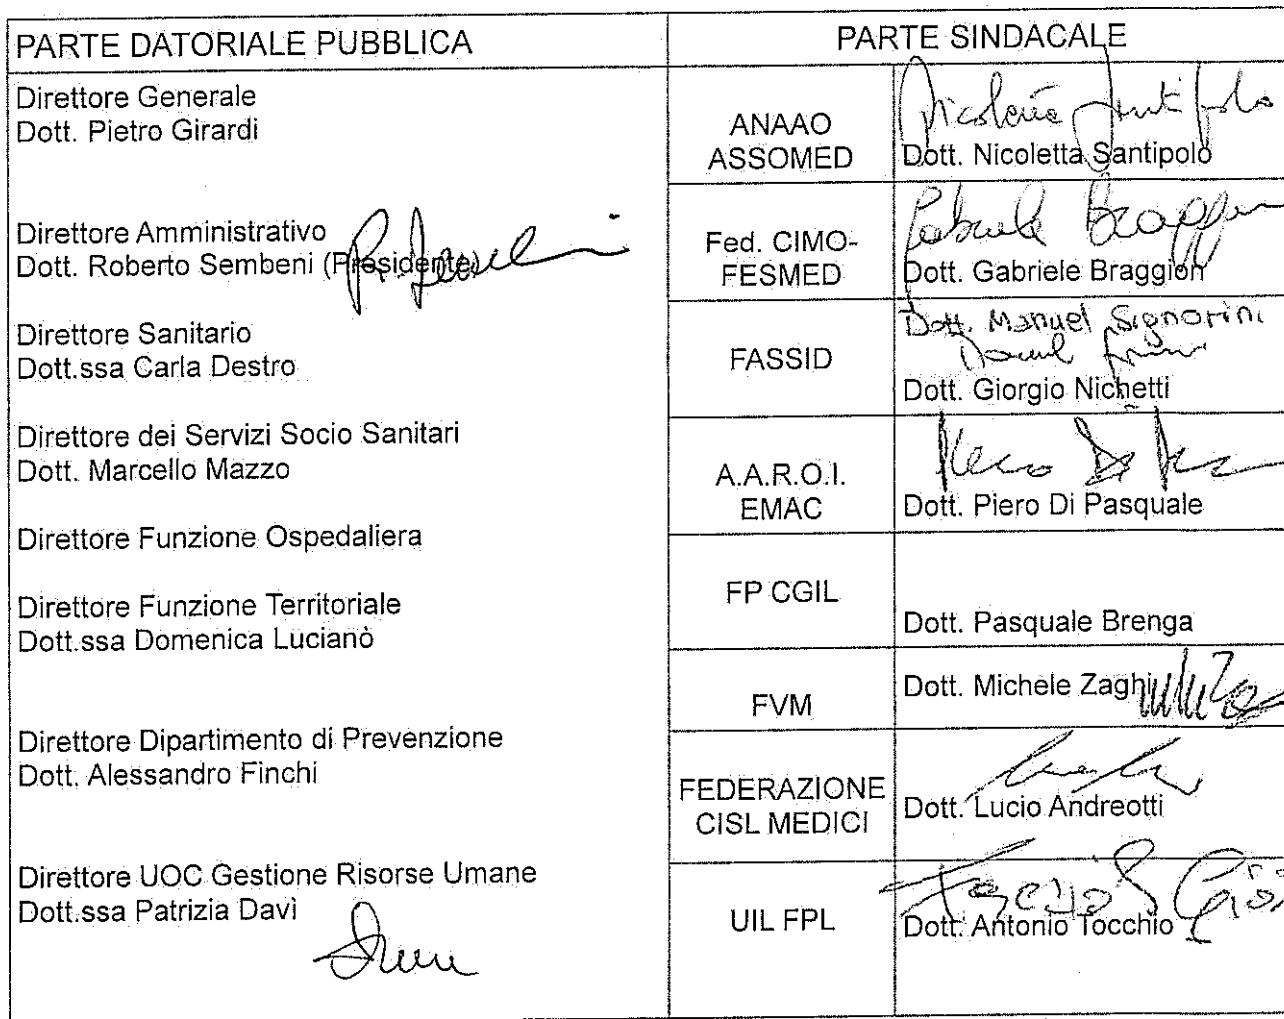 PARTE DATORIALE PUBBLICA
Direttore Generale
Dott. Pietro Girardi
Direttore Amministrativo
Dott. Roberto Sembeni (Presidente)
Direttore Sanitario
Dott.ssa Carla Destro
Direttore dei Servizi Socio Sanitari
Dott. Marcello Mazzo
Direttore Funzione Ospedaliera
Direttore Funzione Territoriale
Dott.ssa Domenica Lucianò
Direttore Dipartimento di Prevenzione
Dott. Alessandro Finchi
Direttore UOC Gestione Risorse Umane
Dott.ssa Patrizia Davì
PARTE SINDACALE
ANAAO
ASSOMED
Dott. Nicoletta Santipolo
Fed. CIMO-
FESMED
Gabriele Braggion
Dott. Gabriele Braggion
FASSID
Dott. Manuel Signorini
Dott. Giorgio Nichetti
A.A.R.O.I.
EMAC
Dott. Piero Di Pasquale
FP CGIL
Dott. Pasquale Brenga
FVM
Dott. Michele Zaghi
FEDERAZIONE
CISL MEDICI
Dott. Lucio Andreotti
UIL FPL
Dott. Antonio Tocchio